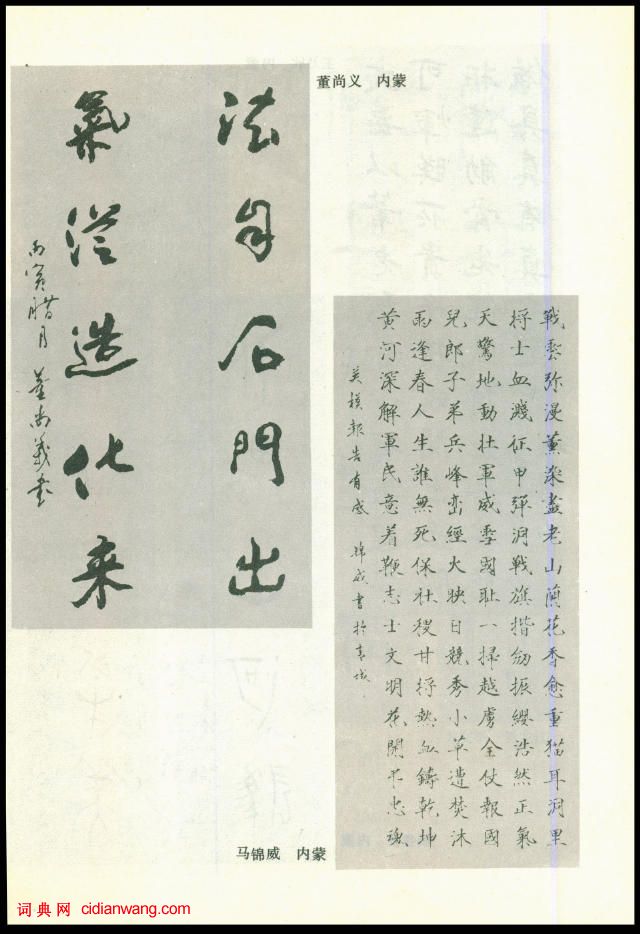 董尚义 内蒙
法自石門出
氣從造化来
丙寅腊月 董尚義书
戰雲弥漫薰染盡老山蘭花香愈重猫耳洞里
将士血濺征甲彈洞戰旗揩劍振纓浩然正氣
天驚地動壮軍威雪國耻一掃越虜全仗報國
兒郎子弟兵峰巒經火映日競秀小草遭焚沐
雨逢春人生誰無死保社稷甘抒熱血鑄乾坤
黄河深解軍民意着鞭志士文明花開吊忠魂
英模報告有感 錦威書於青城
马锦威 内蒙
词典网 cidianwang.com